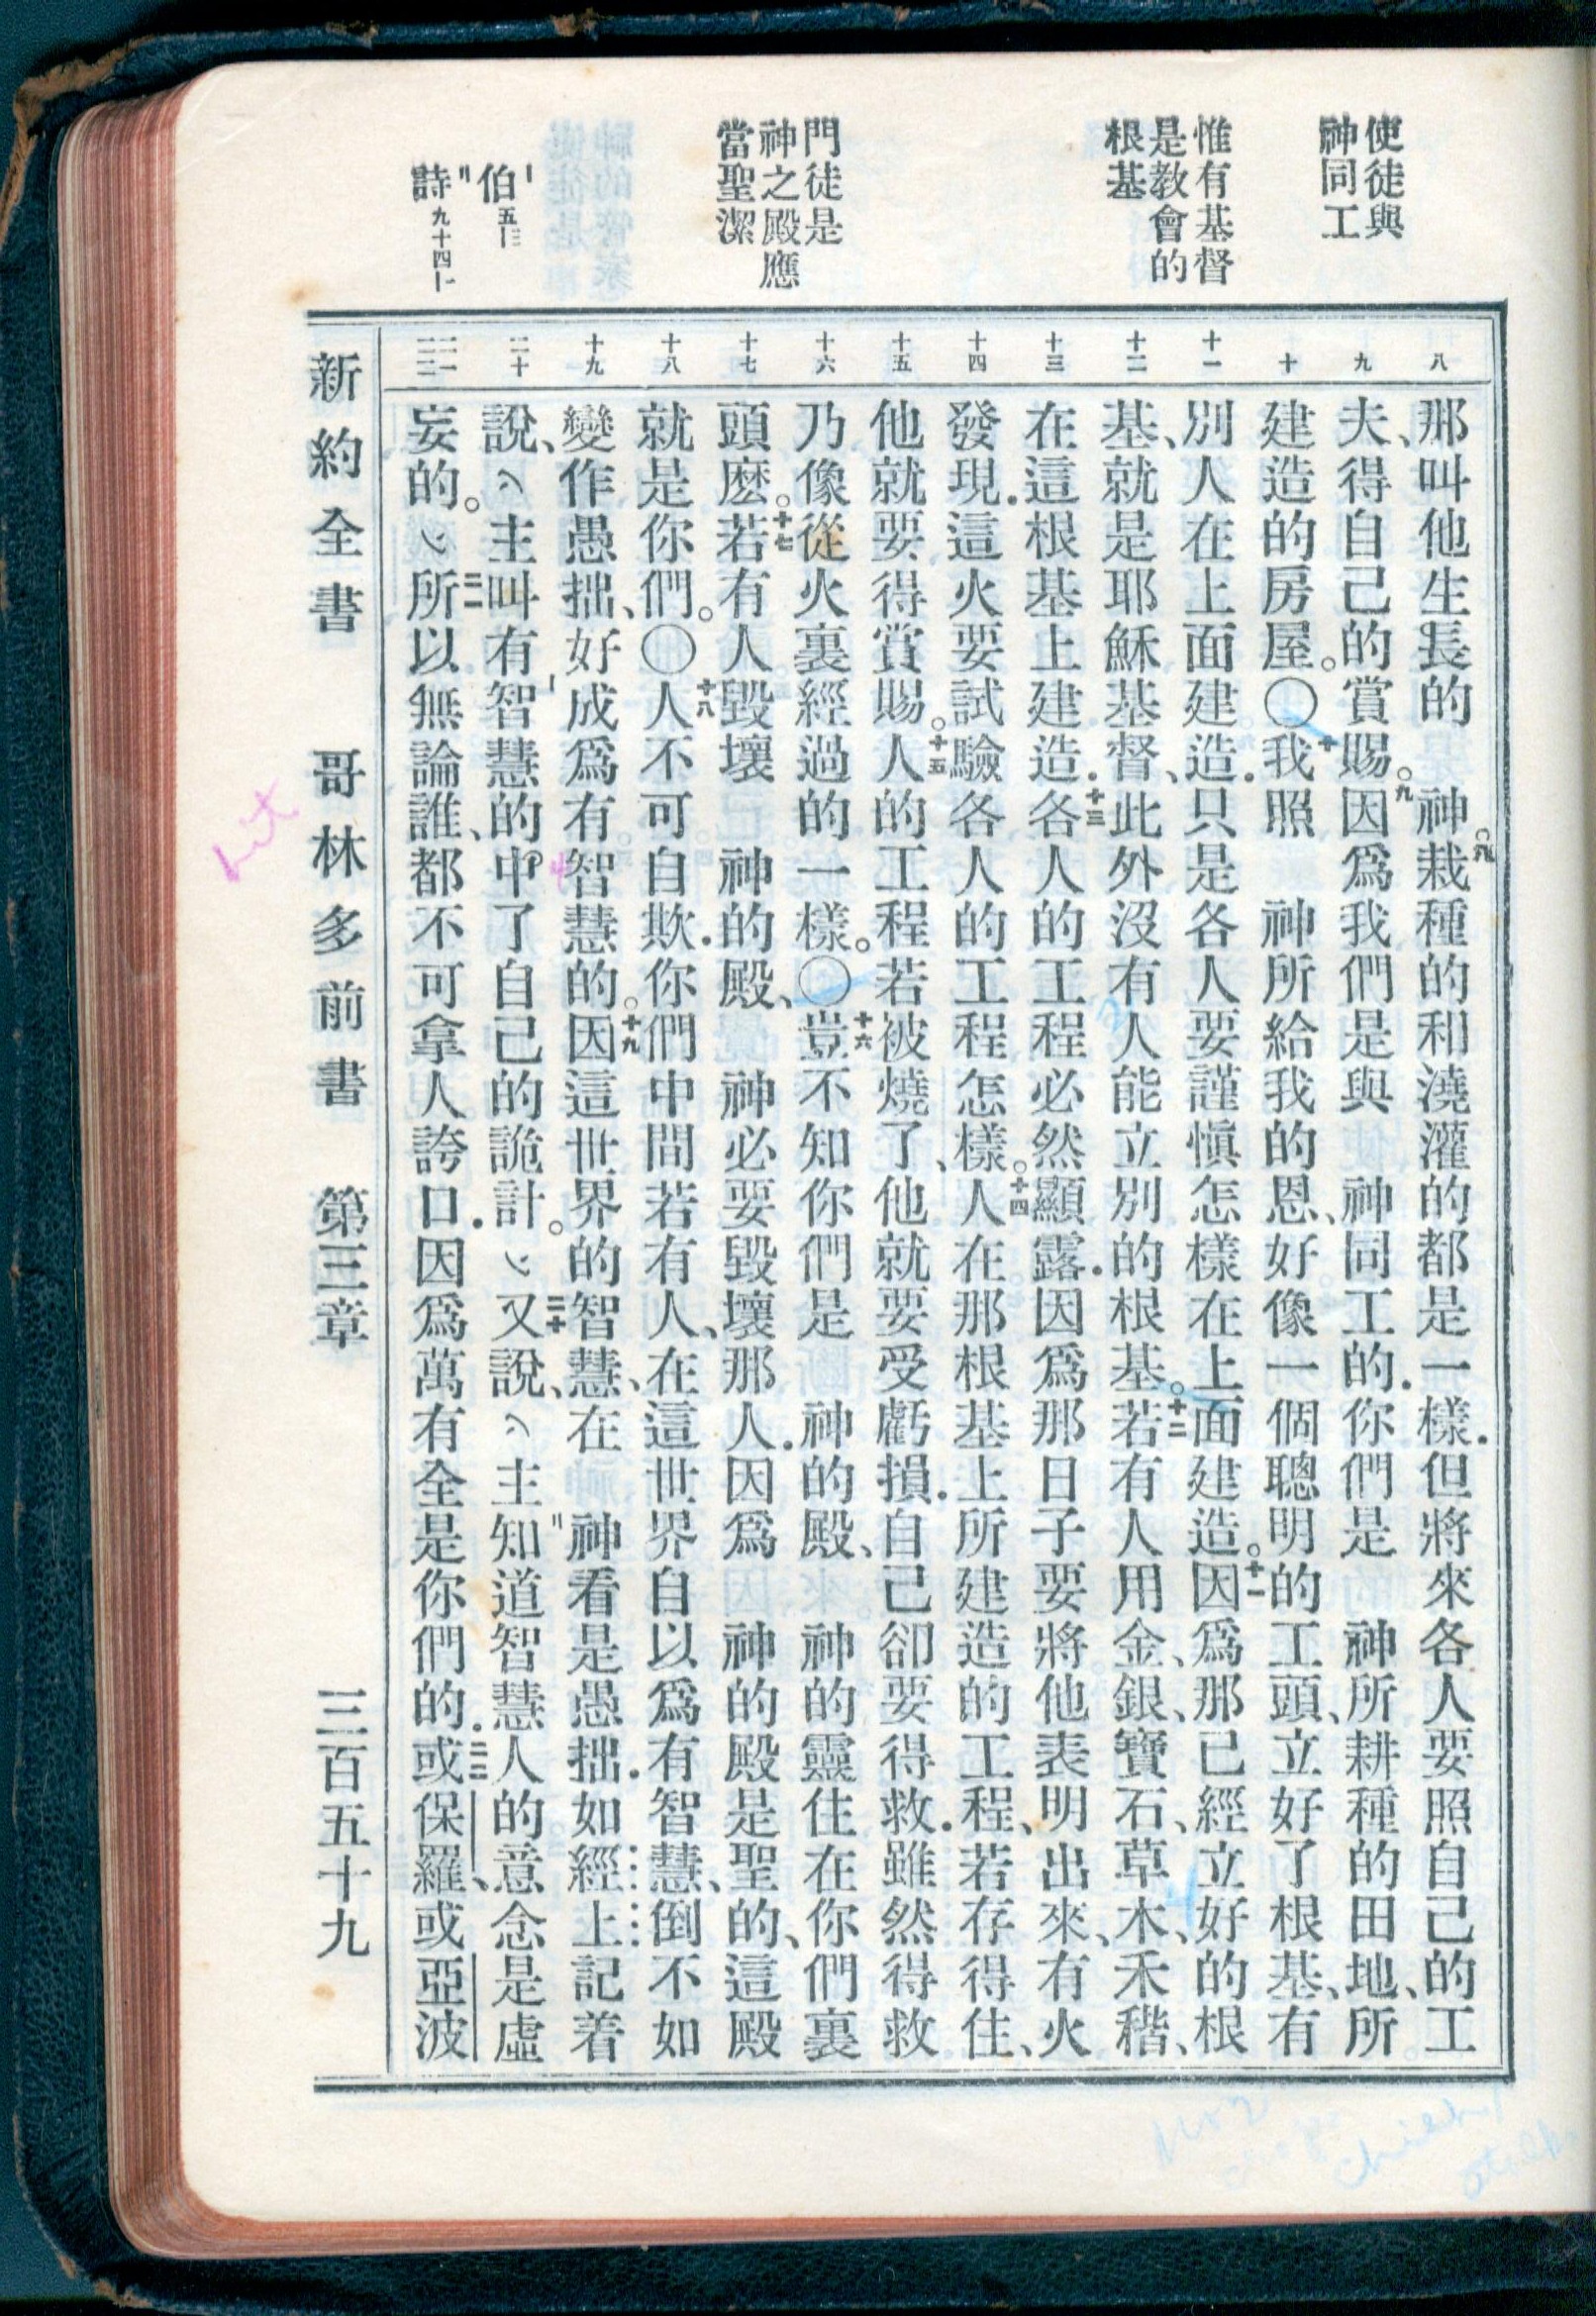 使徒與
神同工
惟有基督
是教會的
根基
門徒是
神之殿應
當聖潔
伯
詩
八
九
十
十一
十二
十三
十四
十五
十六
十七
十八
十九
二十
二一
二二
那叫他生長的 神。八栽種的和澆灌的都是一樣．但將來各人要照自己的工
夫、得自己的賞賜。九因爲我們是與 神同工的．你們是 神所耕種的田地、所
建造的房屋。〇十我照 神所給我的恩、好像一個聰明的工頭、立好了根基、有
別人在上面建造．只是各人要謹愼怎樣在上面建造。十一因爲那已經立好的根
基、就是耶穌基督、此外沒有人能立別的根基。十二若有人用金、銀、寶石、草木、禾稭、
在這根基上建造．十三各人的工程必然顯露．因爲那日子要將他表明出來、有火
發現．這火要試驗各人的工程怎樣。十四人在那根基上所建造的工程、若存得住、
他就要得賞賜。十五人的工程若被燒了、他就要受虧損．自己卻要得救．雖然得救
乃像從火裏經過的一樣。〇十六豈不知你們是 神的殿、 神的靈住在你們裏
頭麽。十七若有人毀壞 神的殿、 神必要毀壞那人．因爲 神的殿是聖的、這殿
就是你們。〇十八人不可自欺．你們中間若有人、在這世界自以爲有智慧、倒不如
變作愚拙、好成爲有智慧的。十九因這世界的智慧、在 神看是愚拙．如經上記着
說、﹁主叫有智慧的中了自己的詭計。﹂二十又說、﹁主知道智慧人的意念是虛
妄的。﹂二一所以無論誰、都不可拿人誇口．因爲萬有全是你們的．二二或保羅、或亞波
新約全書 哥林多前書 第三章 三百五十九